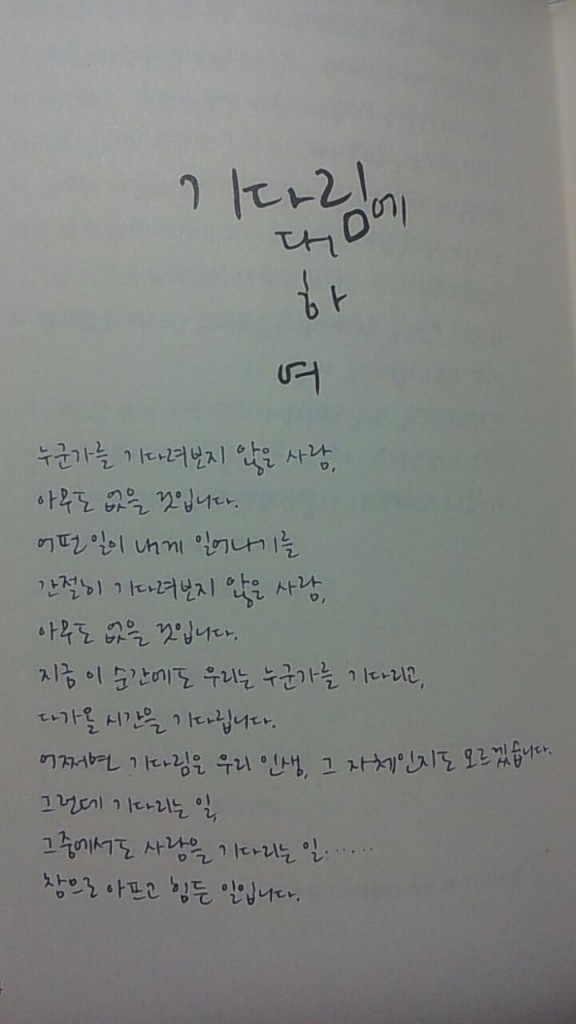 기다림에
대
하
여
누군가를 기다려보지 않은 사람,
아무도 없을 것입니다.
어떤 일이 내게 일어나기를
간절히 기다려보지 않은 사람,
아무도 없을 것입니다.
지금 이 순간에도 우리는 누군가를 기다리고,
다가올 시간을 기다립니다.
어쩌면 기다림은 우리 인생, 그 자체인지도 모르겠습니다.
그런데 기다리는 일,
그중에서도 사람을 기다리는 일......
참으로 아프고 힘든 일입니다.